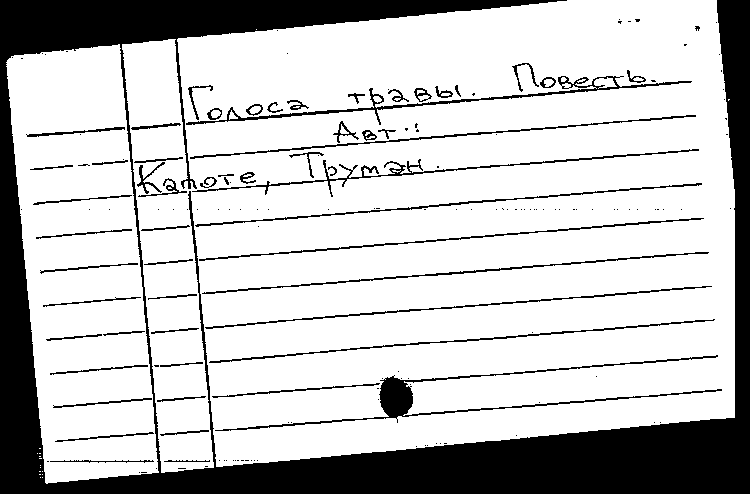 Голоса травы. Повесть.
Авт.:
Капоте, Труман.